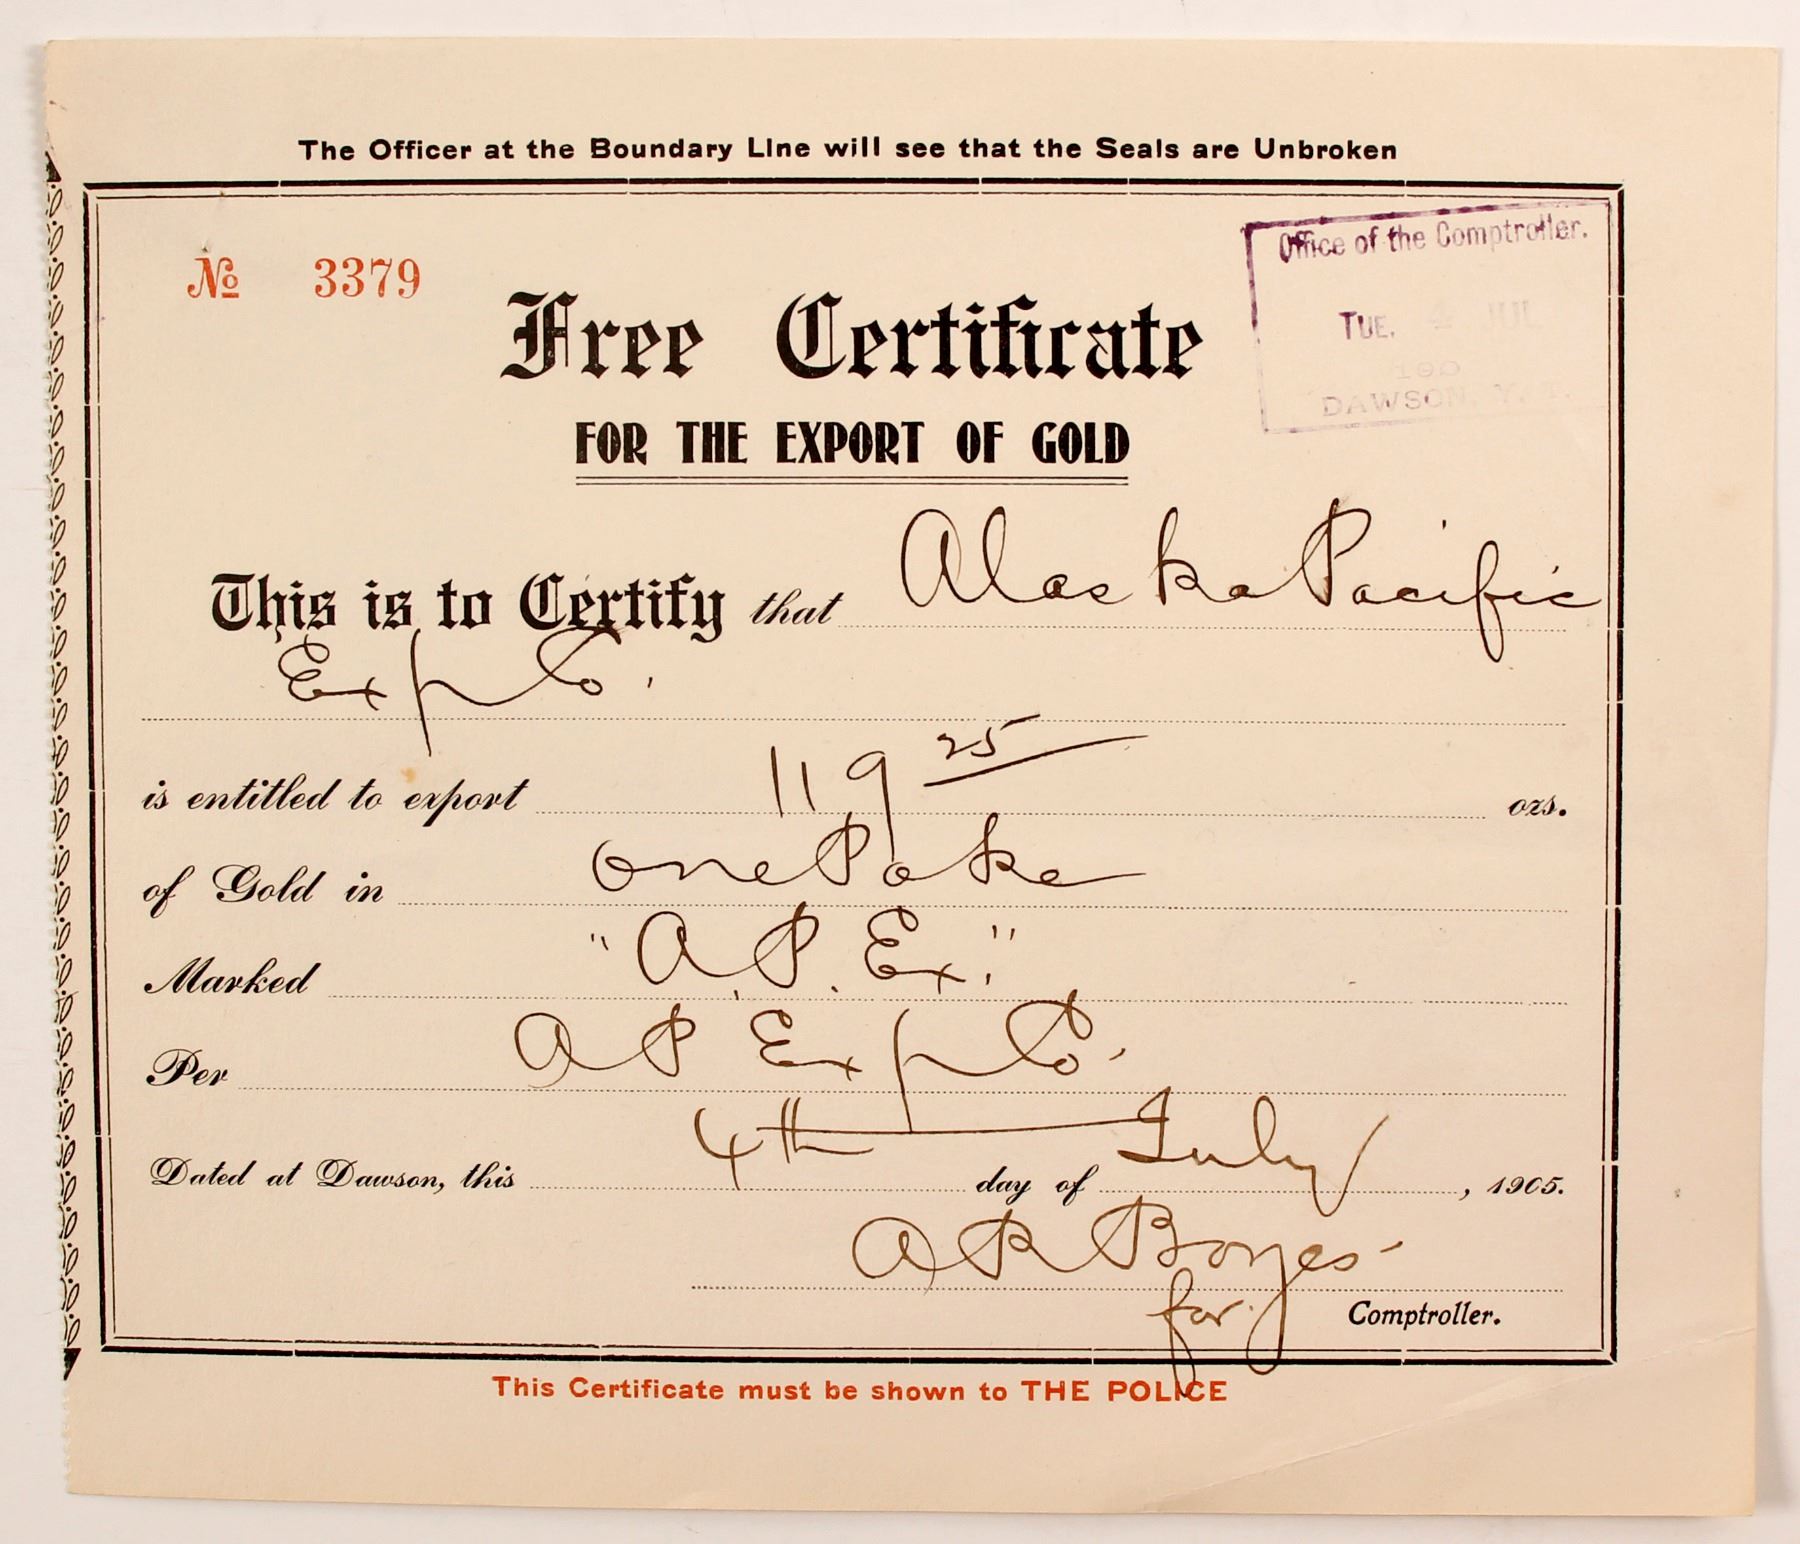 The Officer at the Boundary Line will see that the Seals are Unbroken
Office of the Comptroller.
No 3379
TUE. 4 JUL
190
DAWSON, Y. T.
Free Certificate
FOR THE EXPORT OF GOLD
This is to Certify that Alaska Pacific
Exp Co.
is entitled to export 119 25 ozs.
of Gold in one Poke
Marked "A. P. Ex."
Per A P Exp Co.
Dated at Dawson, this 4th day of July, 1905.
A R Boyes
for Comptroller.
This Certificate must be shown to THE POLICE